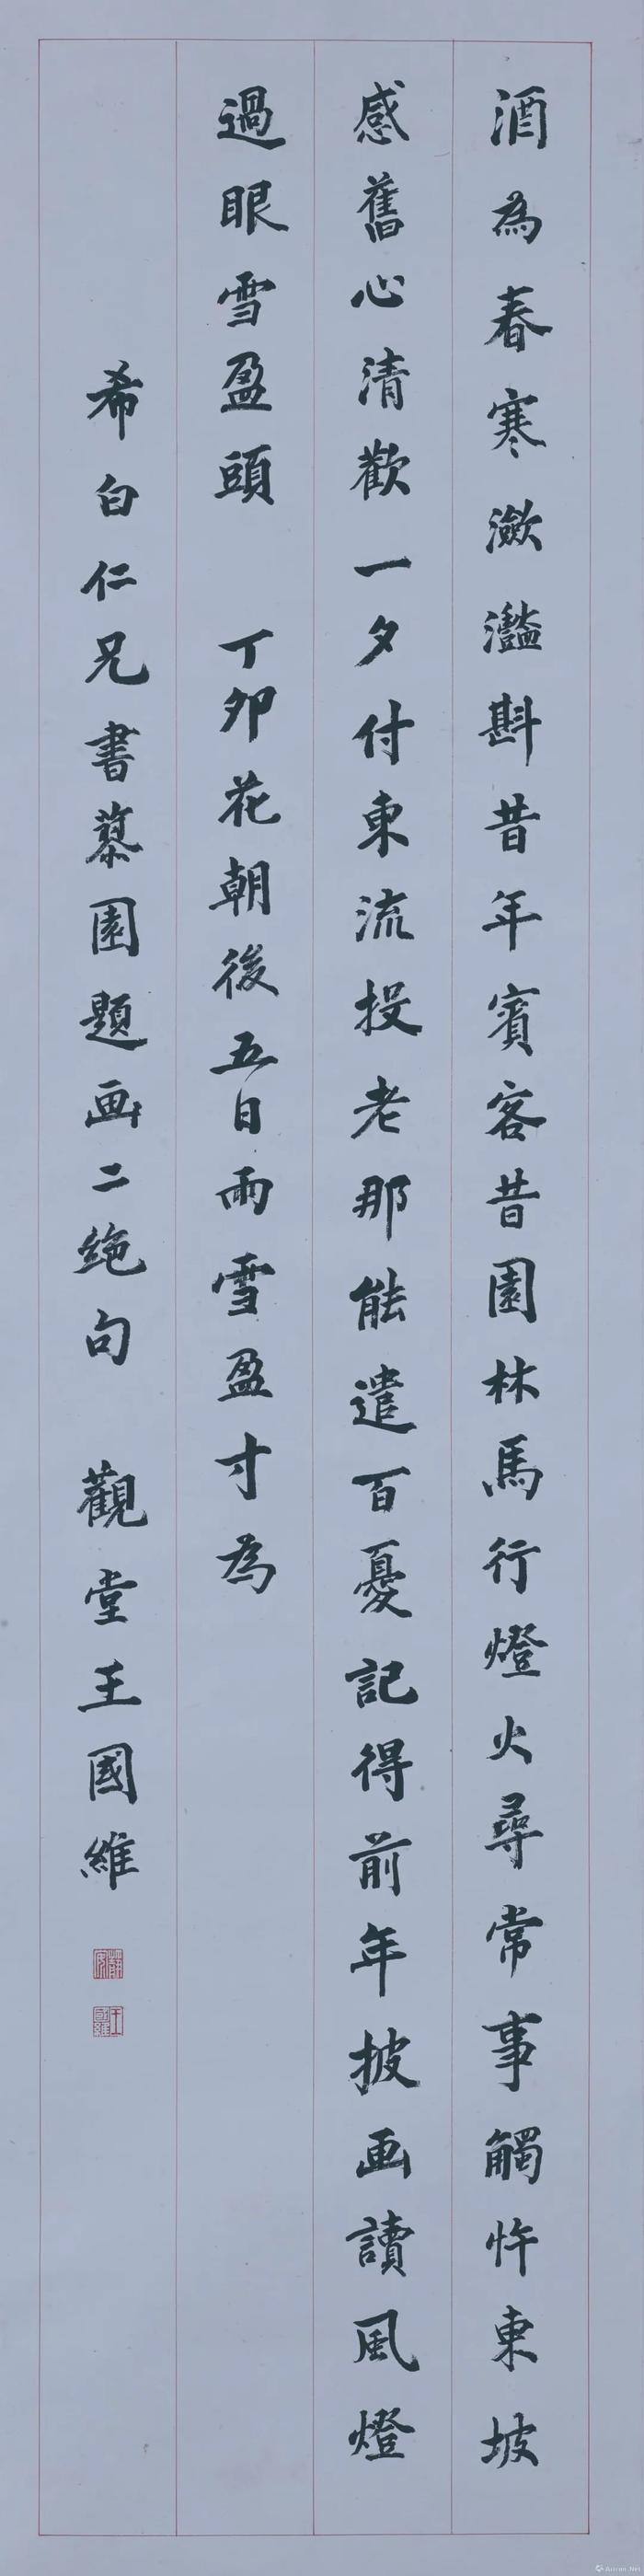 酒為春寒瀲灩斟昔年賓客昔園林馬行燈火尋常事觸忤東坡
感舊心清歡一夕付東流投老那能遣百憂記得前年披画讀風燈
過眼雪盈頭 丁卯花朝後五日雨雪盈寸為
希白仁兄書摹園題画二絶句 觀堂王國維
王國維